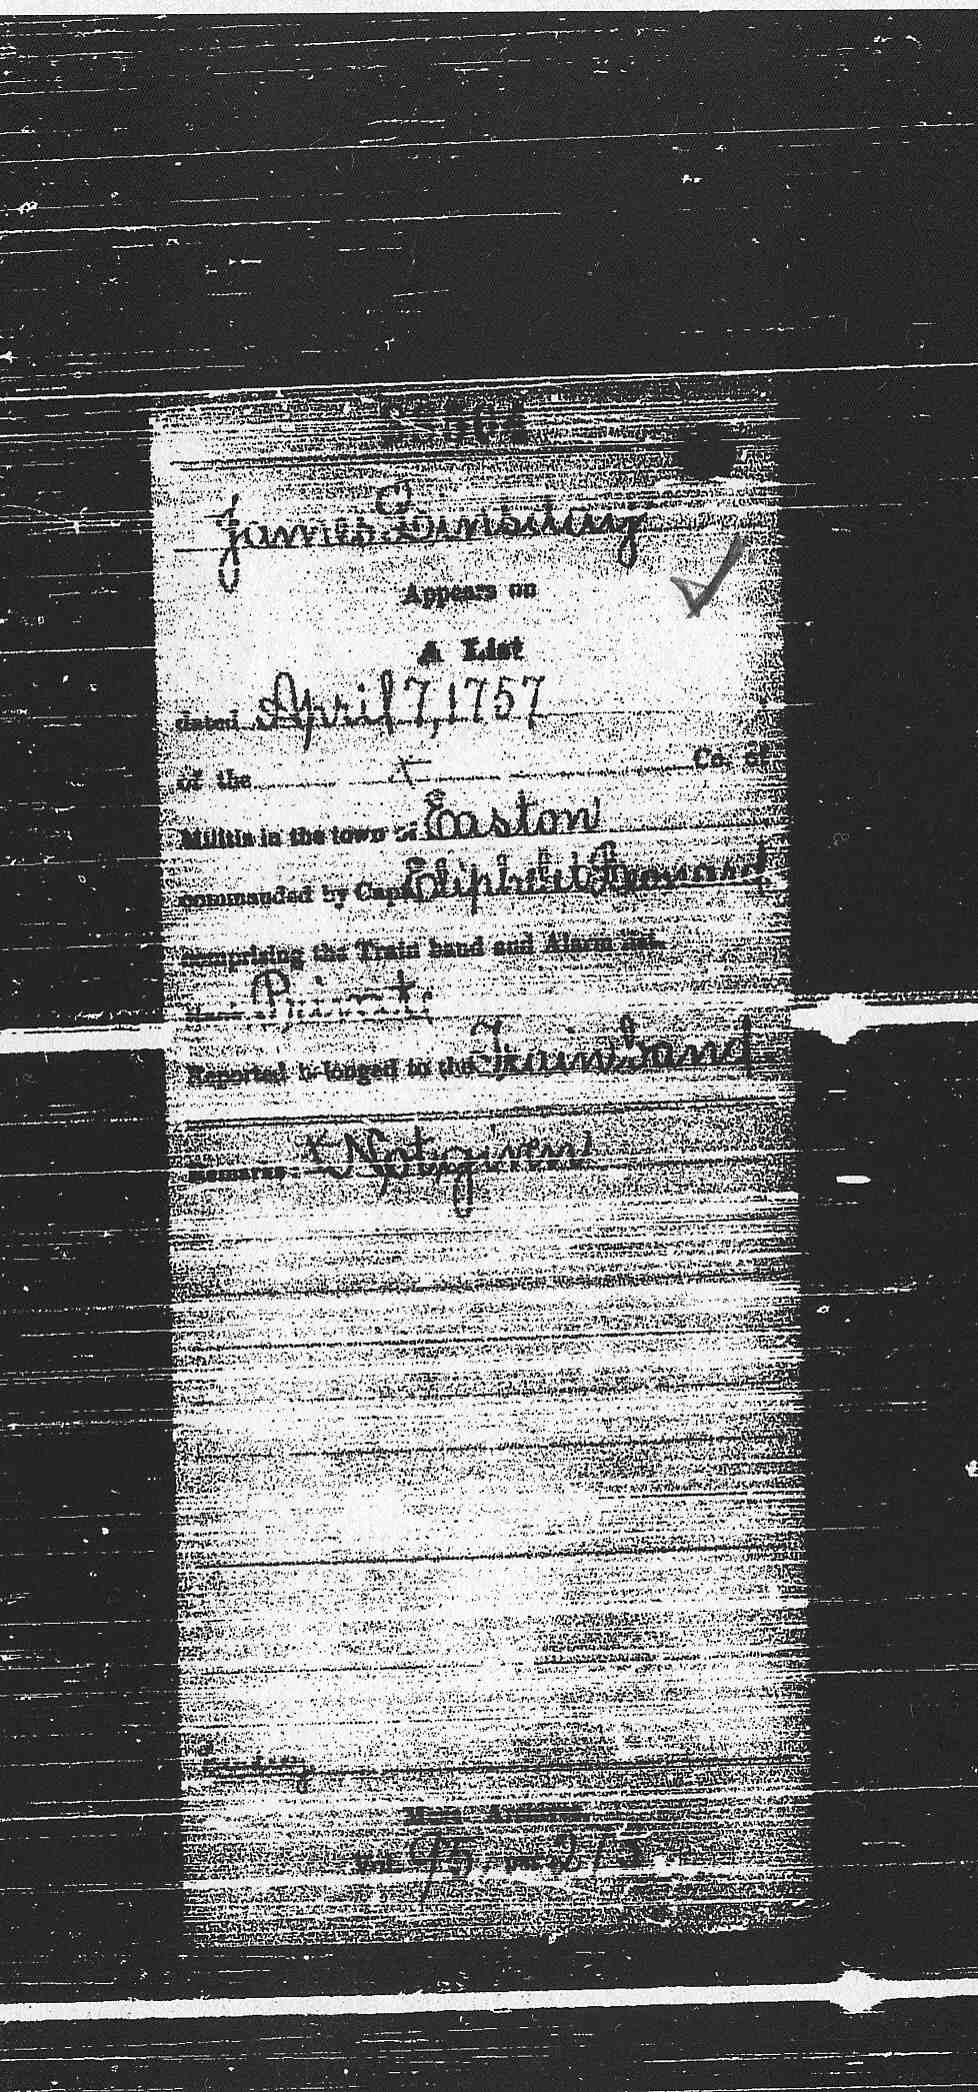 James Linsday
Appears on
A List
dated April 7, 1757
of the x Co. of
Militia in the town of Easton
commanded by Capt. Eliphalet
comprising the Train band and Alarm list.
Private
Reported belonged to the Train band
Remarks: x Not given
Mass. Archives
Vol. 95 215